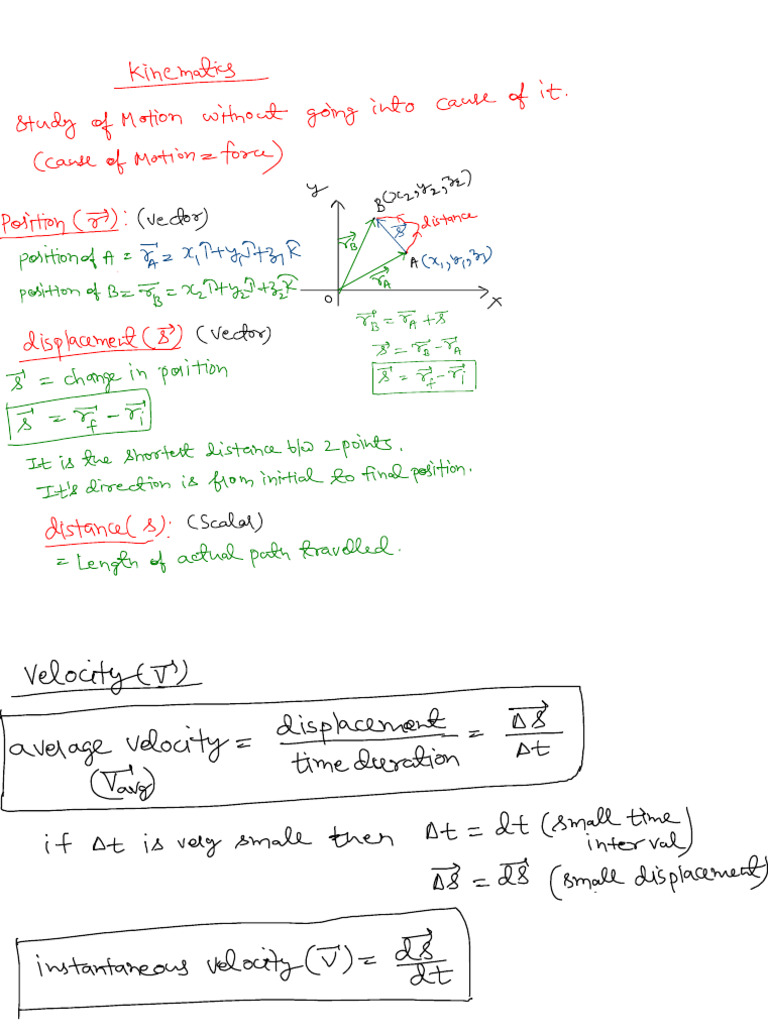 Kinematics
Study of Motion without going into cause of it.
(cause of Motion = force)
Position (r⃗) : (vector)
position of A = r⃗_A = x₁î + y₁ĵ + z₁k̂
position of B = r⃗_B = x₂î + y₂ĵ + z₂k̂
y
B (x₂, y₂, z₂)
distance
r⃗_B
s⃗
A (x₁, y₁, z₁)
r⃗_A
O
x
r⃗_B = r⃗_A + s⃗
s⃗ = r⃗_B - r⃗_A
s⃗ = r⃗_f - r⃗_i
displacement (s⃗) (vector)
s⃗ = change in position
s⃗ = r⃗_f - r⃗_i
It is the shortest distance b/w 2 points.
It's direction is from initial to final position.
distance( s): (Scalar)
= Length of actual path travelled.
Velocity (V⃗)
average velocity = displacement / time duration = Δs⃗ / Δt
(V⃗avg)
if Δt is very small then Δt = dt (small time
interval)
Δs⃗ = ds⃗ (small displacement)
instantaneous velocity (V⃗) = ds⃗ / dt